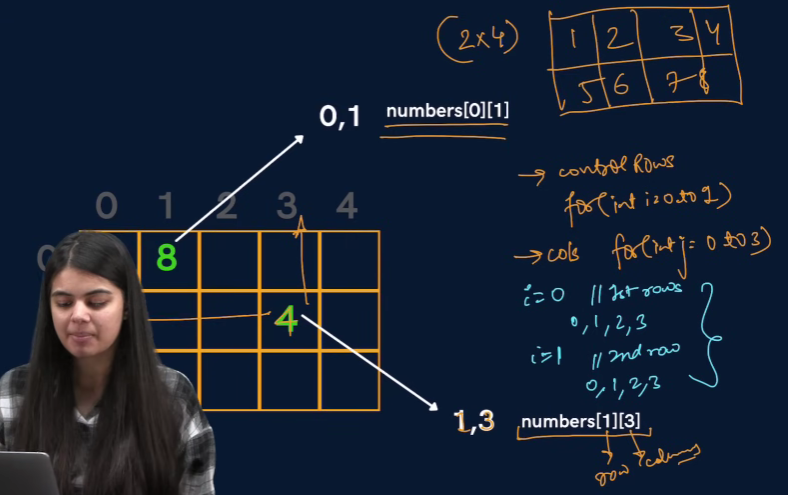 (2x4)
1 2 3 4
5 6 7 8
0,1 numbers[0][1]
→ control Rows
for(int i=0 to 1)
→ cols for(int j=0 to 3)
i=0 // 1st rows
0,1,2,3
i=1 // 2nd row
0,1,2,3
0 1 2 3 4
0
8
4
1,3 numbers[1][3]
row columns